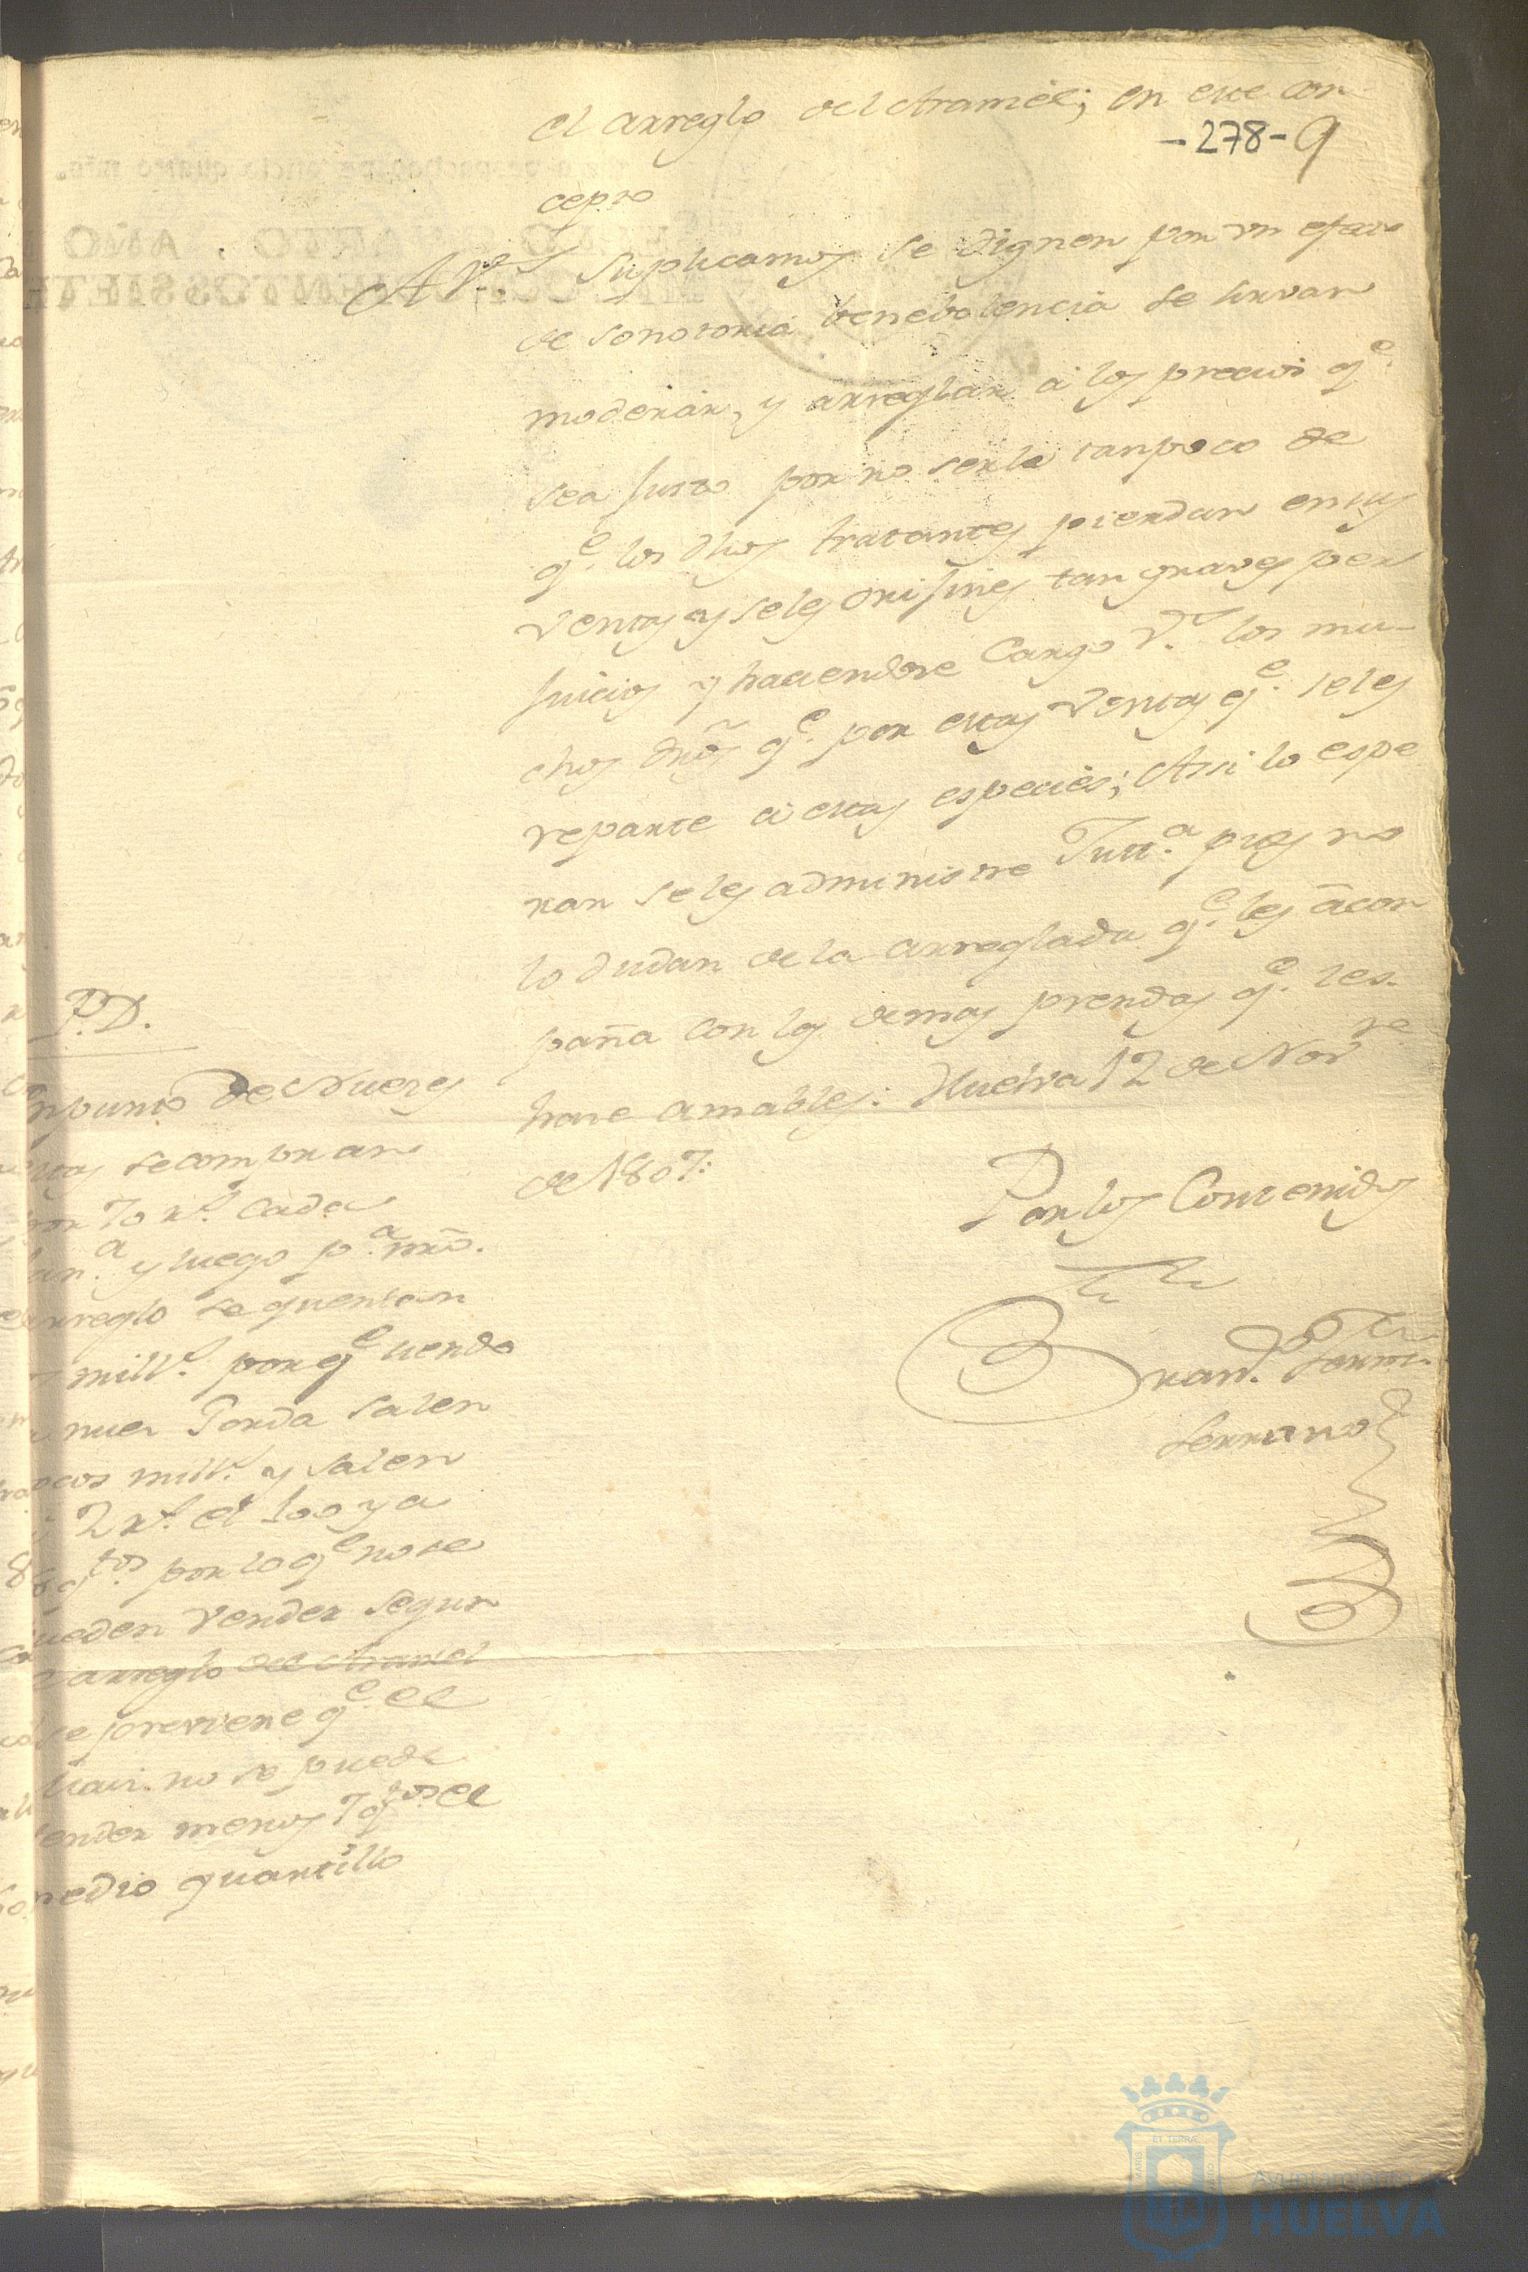 el arreglo del Aramcel; en este con-
-278- 9
cepto
A V.s Suplicamos se dignen por un efecto
de su notoria benebolencia se sirvan
moderar, y arreglar a los precios q.e
sea justo por no serlo tanpoco de
q.e los dhos tratantes pierdan en sus
ventas y seles orijines tan graves per
juicios y haciendose Cargo V.s los mu-
chos dros q.e por estas ventas q.e seles
reparte a estas especies; Assi lo espe
ran seles administre Just.a pues no
lo dudan de la arreglada q.e les acon
paña con las demas prendas q.e les
hace amables: Huelva 12 de Nov.re
de 1807:
Por los Contenidos
Fran.co Ferm.
Serrano
P.D.
punto de Nueces
estas se compran
por 70 r.s cada
y luego p.a
arreglo se quentan
mill.s por q.e siendo
nuez Gorda salen
pocos mill.s y salen
2 r.s el 100 y a
8 q.tos por lo q.e no se
pueden vender segun
arreglo del Arancel
se previene q.e el
no se puede
vender menos 7 q.tos el
medio quartillo
ET TERRÆ
Ayuntamiento de
HUELVA